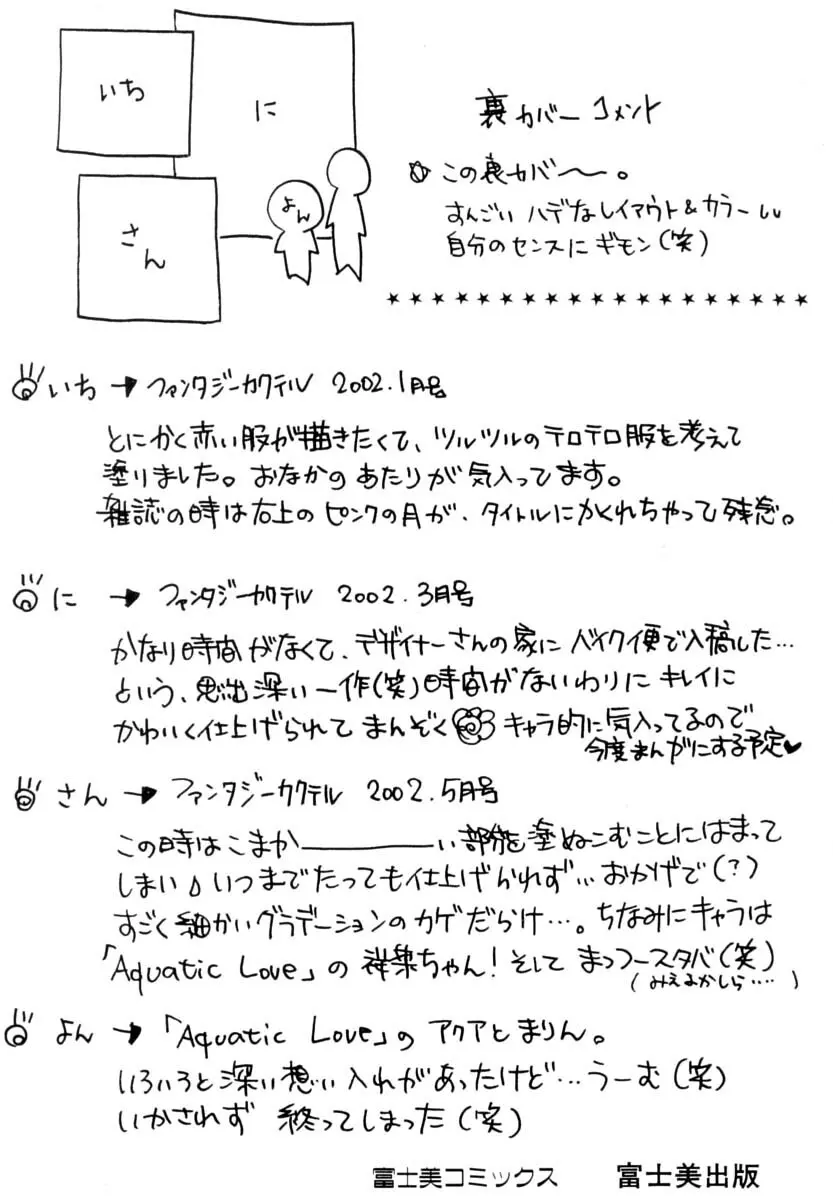 いち
に
さん
よん
裏カバーコメント
この裏カバ〜。
すんごいハデなレイアウト&カラーしい
自分のセンスにギモン(笑)
★★★★★★★★★★★★★★★★★★★
いち → ファンタジーカクテル 2002.1月号
とにかく赤い服が描きたくて、ツルツルのテロテロ服を考えて
塗りました。おなかのあたりが気入ってます。
雑誌の時は右上のピンクの月が、タイトルにかくれちゃって残念。
に → ファンタジーカクテル 2002.3月号
かなり時間がなくて、デザイナーさんの家にバイク便で入稿した…
という、思出深い一作(笑)時間がないわりにキレイに
かわいく仕上げられてまんぞく キャラ的に気入ってるので
今度まんがにする予定♥
さん → ファンタジーカクテル 2002.5月号
この時はこまか――――い部分を塗ぬこむことにはまって
しまい いつまでたっても仕上げられず… おかげで(?)
すごく細かいグラデーションのカゲだらけ…。ちなみにキャラは
「Aquatic Love」の ちゃん!そして スタバ(笑)
(みえるかしら‥‥)
よん → 「Aquatic Love」のアクアとまりん。
いろいろと深い想い入れがあったけど…うーむ(笑)
いかされず 終ってしまった(笑)
富士美コミックス 富士美出版